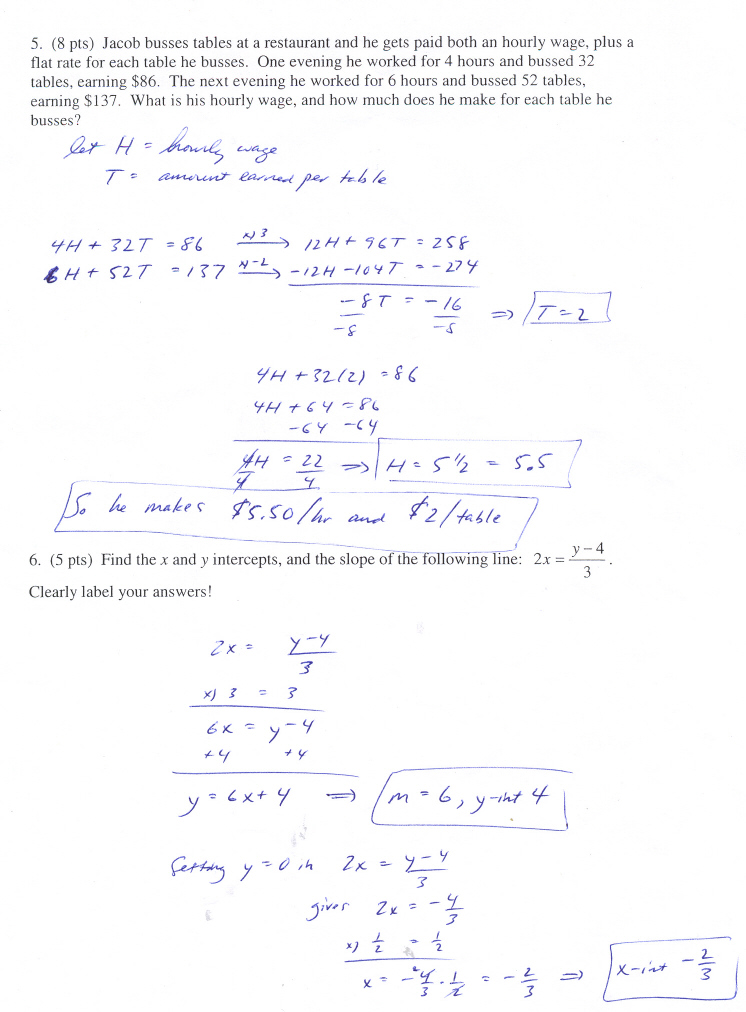 5. (8 pts) Jacob busses tables at a restaurant and he gets paid both an hourly wage, plus a
flat rate for each table he busses. One evening he worked for 4 hours and bussed 32
tables, earning $86. The next evening he worked for 6 hours and bussed 52 tables,
earning $137. What is his hourly wage, and how much does he make for each table he
busses?
let H = hourly wage
T = amount earned per table
4H + 32T = 86 x) 3 → 12H + 96T = 258
6H + 52T = 137 x) -2 → -12H - 104T = -274
-8T = -16 ⇒ T = 2
-8 -8
4H + 32(2) = 86
4H + 64 = 86
-64 -64
4H = 22 ⇒ H = 5 1/2 = 5.5
4 4
So he makes $5.50/hr and $2/table
6. (5 pts) Find the x and y intercepts, and the slope of the following line: 2x = (y − 4)/3.
Clearly label your answers!
2x = (y-4)/3
x) 3 = 3
6x = y-4
+4 +4
y = 6x + 4 ⇒ m = 6, y-int 4
Setting y = 0 in 2x = (y-4)/3
gives 2x = -4/3
x) 1/2 = 1/2
x = -4/3 · 1/2 = -2/3 ⇒ x-int -2/3